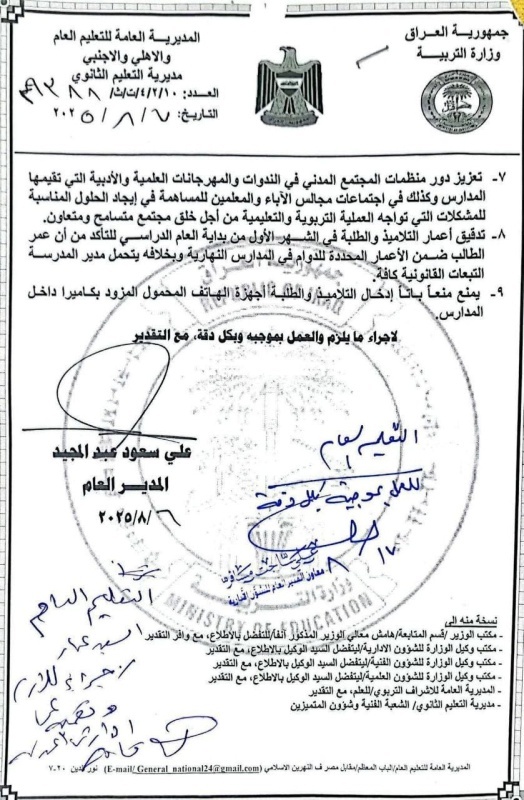 جمهورية العراق
وزارة التربية
المديرية العامة للتعليم العام
والاهلي والاجنبي
مديرية التعليم الثانوي
العدد:
التاريخ: ٢٠٢٥/٨/٦
٧- تعزيز دور منظمات المجتمع المدني في الندوات والمهرجانات العلمية والأدبية التي تقيمها
المدارس وكذلك في اجتماعات مجالس الآباء والمعلمين للمساهمة في إيجاد الحلول المناسبة
للمشكلات التي تواجه العملية التربوية والتعليمية من أجل خلق مجتمع متسامح ومتعاون.
٨- تدقيق أعمار التلاميذ والطلبة في الشهر الأول من بداية العام الدراسي للتأكد من أن عمر
الطالب ضمن الأعمار المحددة للدوام في المدارس النهارية وبخلافه يتحمل مدير المدرسة
التبعات القانونية كافة.
٩- يمنع منعاً باتاً إدخال التلاميذ والطلبة أجهزة الهاتف المحمول المزود بكاميرا داخل
المدارس.
لاجراء ما يلزم والعمل بموجبه وبكل دقة، مع التقدير
علي سعود عبد المجيد
المدير العام
٢٠٢٥/٨/٦
التعليم العام
للعمل بموجبه بكل دقة
٨/١٧
MINISTRY OF EDUCATION
التعليم العام
نسخة منه الى
- مكتب الوزير /قسم المتابعة/هامش معالي الوزير المذكور آنفاً/للتفضل بالاطلاع، مع وافر التقدير
- مكتب وكيل الوزارة للشؤون الادارية/ليتفضل السيد الوكيل بالاطلاع، مع التقدير
- مكتب وكيل الوزارة للشؤون الفنية/ليتفضل السيد الوكيل بالاطلاع، مع التقدير
- مكتب وكيل الوزارة للشؤون العلمية/ليتفضل السيد الوكيل بالاطلاع، مع التقدير
- المديرية العامة للاشراف التربوي/للعلم، مع التقدير
- مديرية التعليم الثانوي/ الشعبة الفنية وشؤون المتميزين
المديرية العامة للتعليم العام/الباب المعظم/مقابل مصرف النهرين الاسلامي (E-mail/ General_national24@gmail.com) نور الدين ٢٠-٧